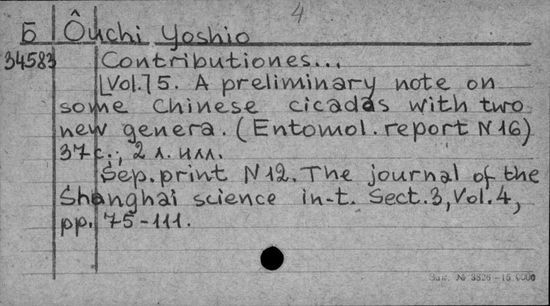 4
Б Ôuchi Yoshio
34583 Contributiones...
[Vol.]5. A preliminary note on
some Chinese cicadas with two
new genera. (Entomol. report N 16)
37 с.; 2 л. илл.
Sep. print N 12. The journal of the
Shanghai science in-t. Sect. 3, Vol. 4,
pp. 75-111.